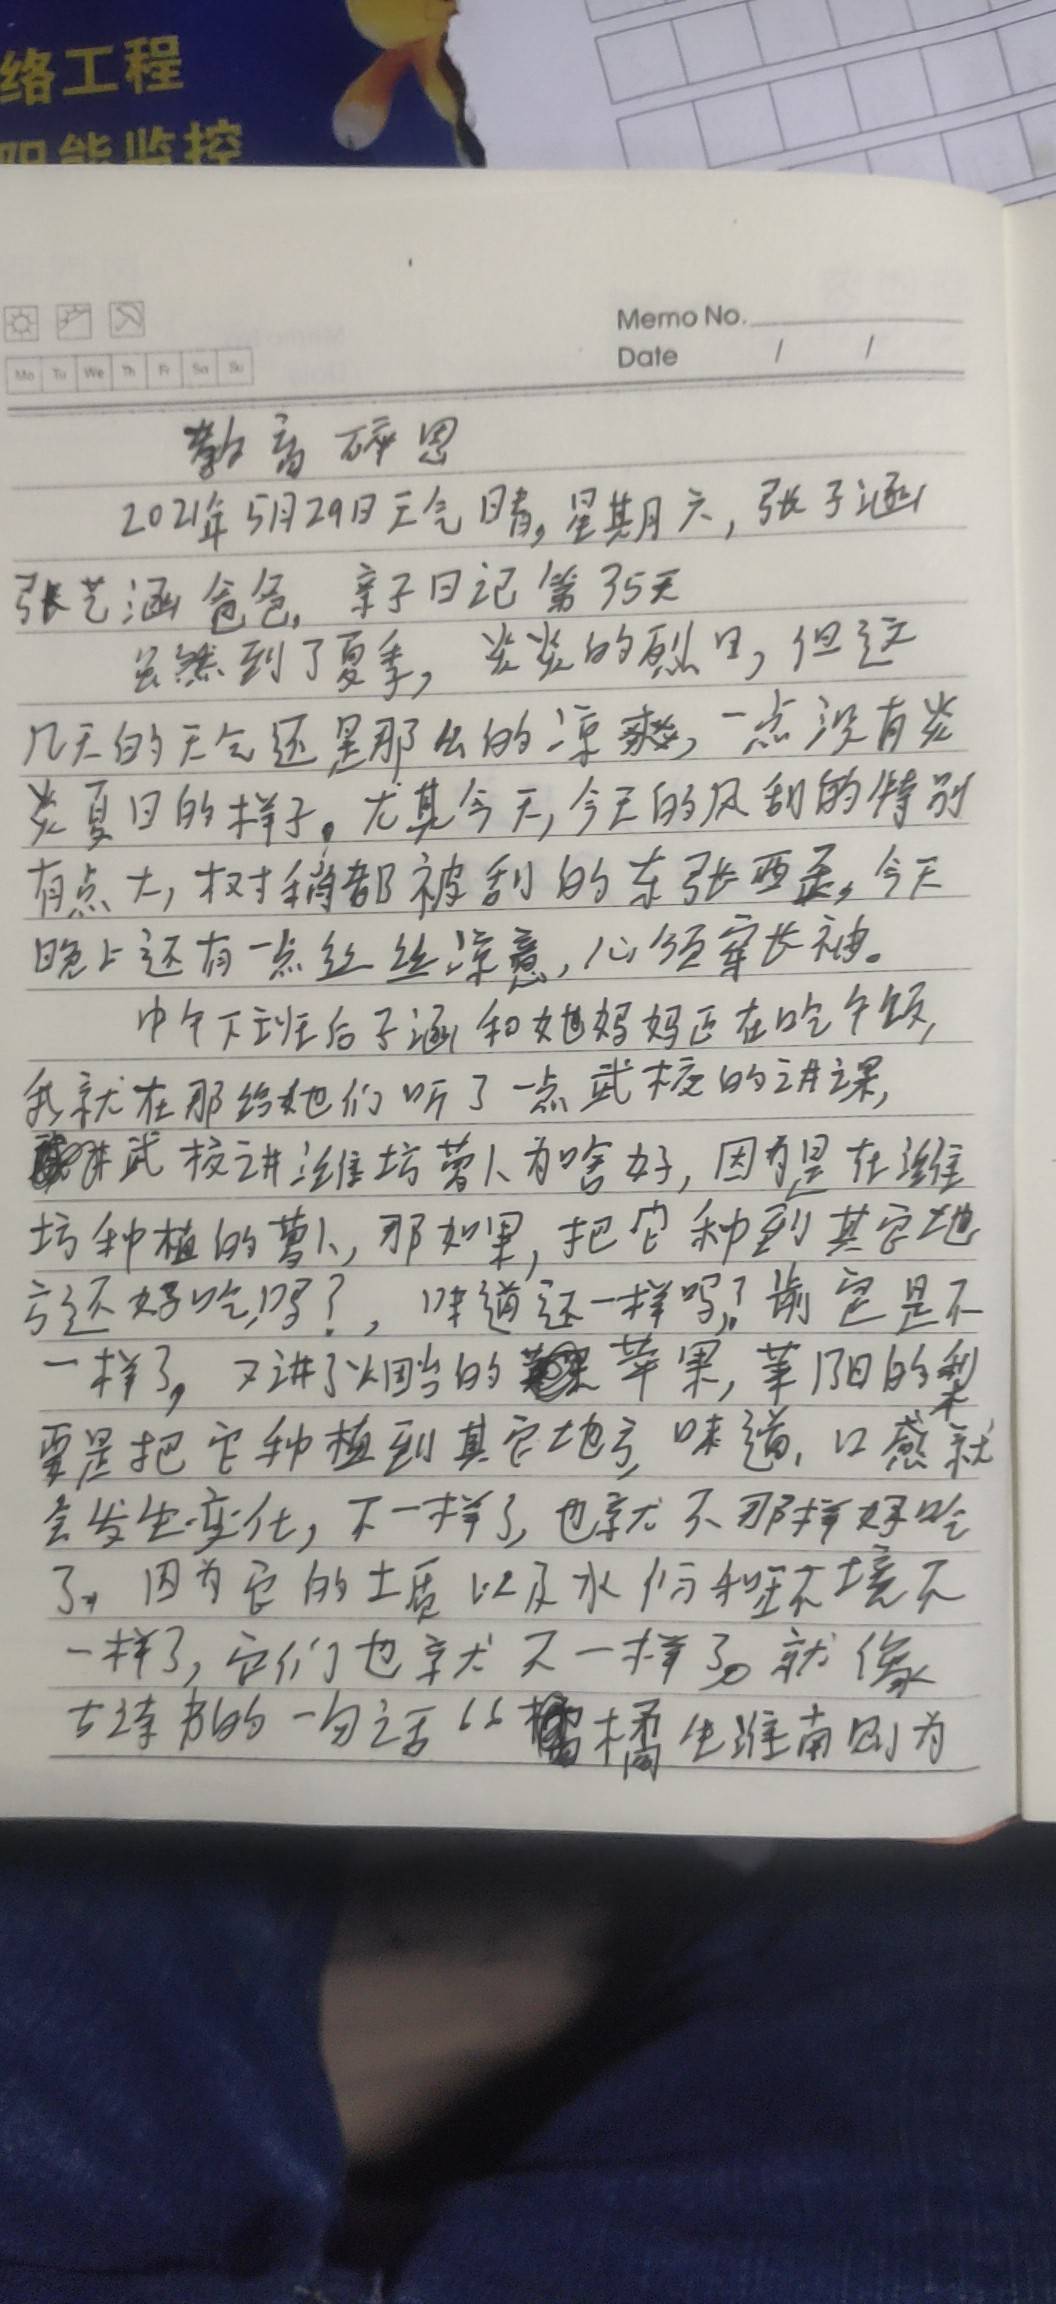 络工程
智能监控
Memo No.
Date / /
Mo Tu We Th Fr Sa Su
教育碎思
2021年5月29日天气晴,星期六,张子涵
张艺涵爸爸,亲子日记第35天
虽然到了夏季,炎炎的烈日,但这
几天的天气还是那么的凉爽,一点没有炎
炎夏日的样子。尤其今天,今天的风刮的特别
有点大,树梢都被刮的东张西歪,今天
晚上还有一点丝丝凉意,必须穿长袖。
中午下班后子涵和她妈妈正在吃午饭,
我就在那给她们听了一点武校的讲课,
武校讲潍坊萝卜为啥好,因为是在潍
坊种植的萝卜,那如果,把它种到其它地
方还好吃吗?,味道还一样吗?肯定是不
一样了,又讲了烟台的苹果,莱阳的梨
要是把它种植到其它地方,味道,口感就
会发生变化,不一样了,也就不那样好吃
了,因为它的土质以及水份和环境不
一样了,它们也就不一样了。就像
古诗书的一句话“橘生淮南则为